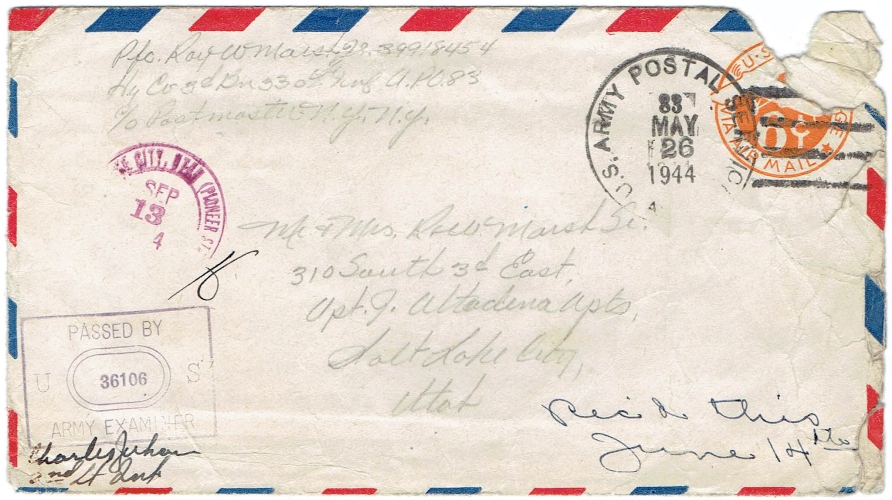 Pfc. Roe W Marsh Jr. 39918454
Hq Co 3d Bn 330th Inf A.P.O. 83
c/o Postmaster N.Y. N.Y.
U.S. ARMY POSTAL SERVICE
83
MAY
26
1944
U.S. POSTAGE
VIA AIR MAIL
CITY, UTAH (PIONEER ST.
SEP
13
4
Mr & Mrs. Roe W Marsh Sr.
310 South 3d East,
Apt. J. Altadena Apts,
Salt Lake City,
Utah
PASSED BY
U 36106 S
ARMY EXAMINER
Rec'd this
June 14th
2nd Lt Inf